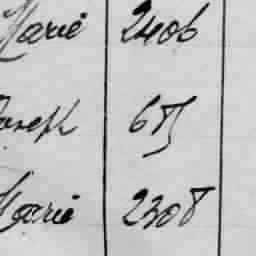 Marie 2406
Joseph 615
Marie 2308